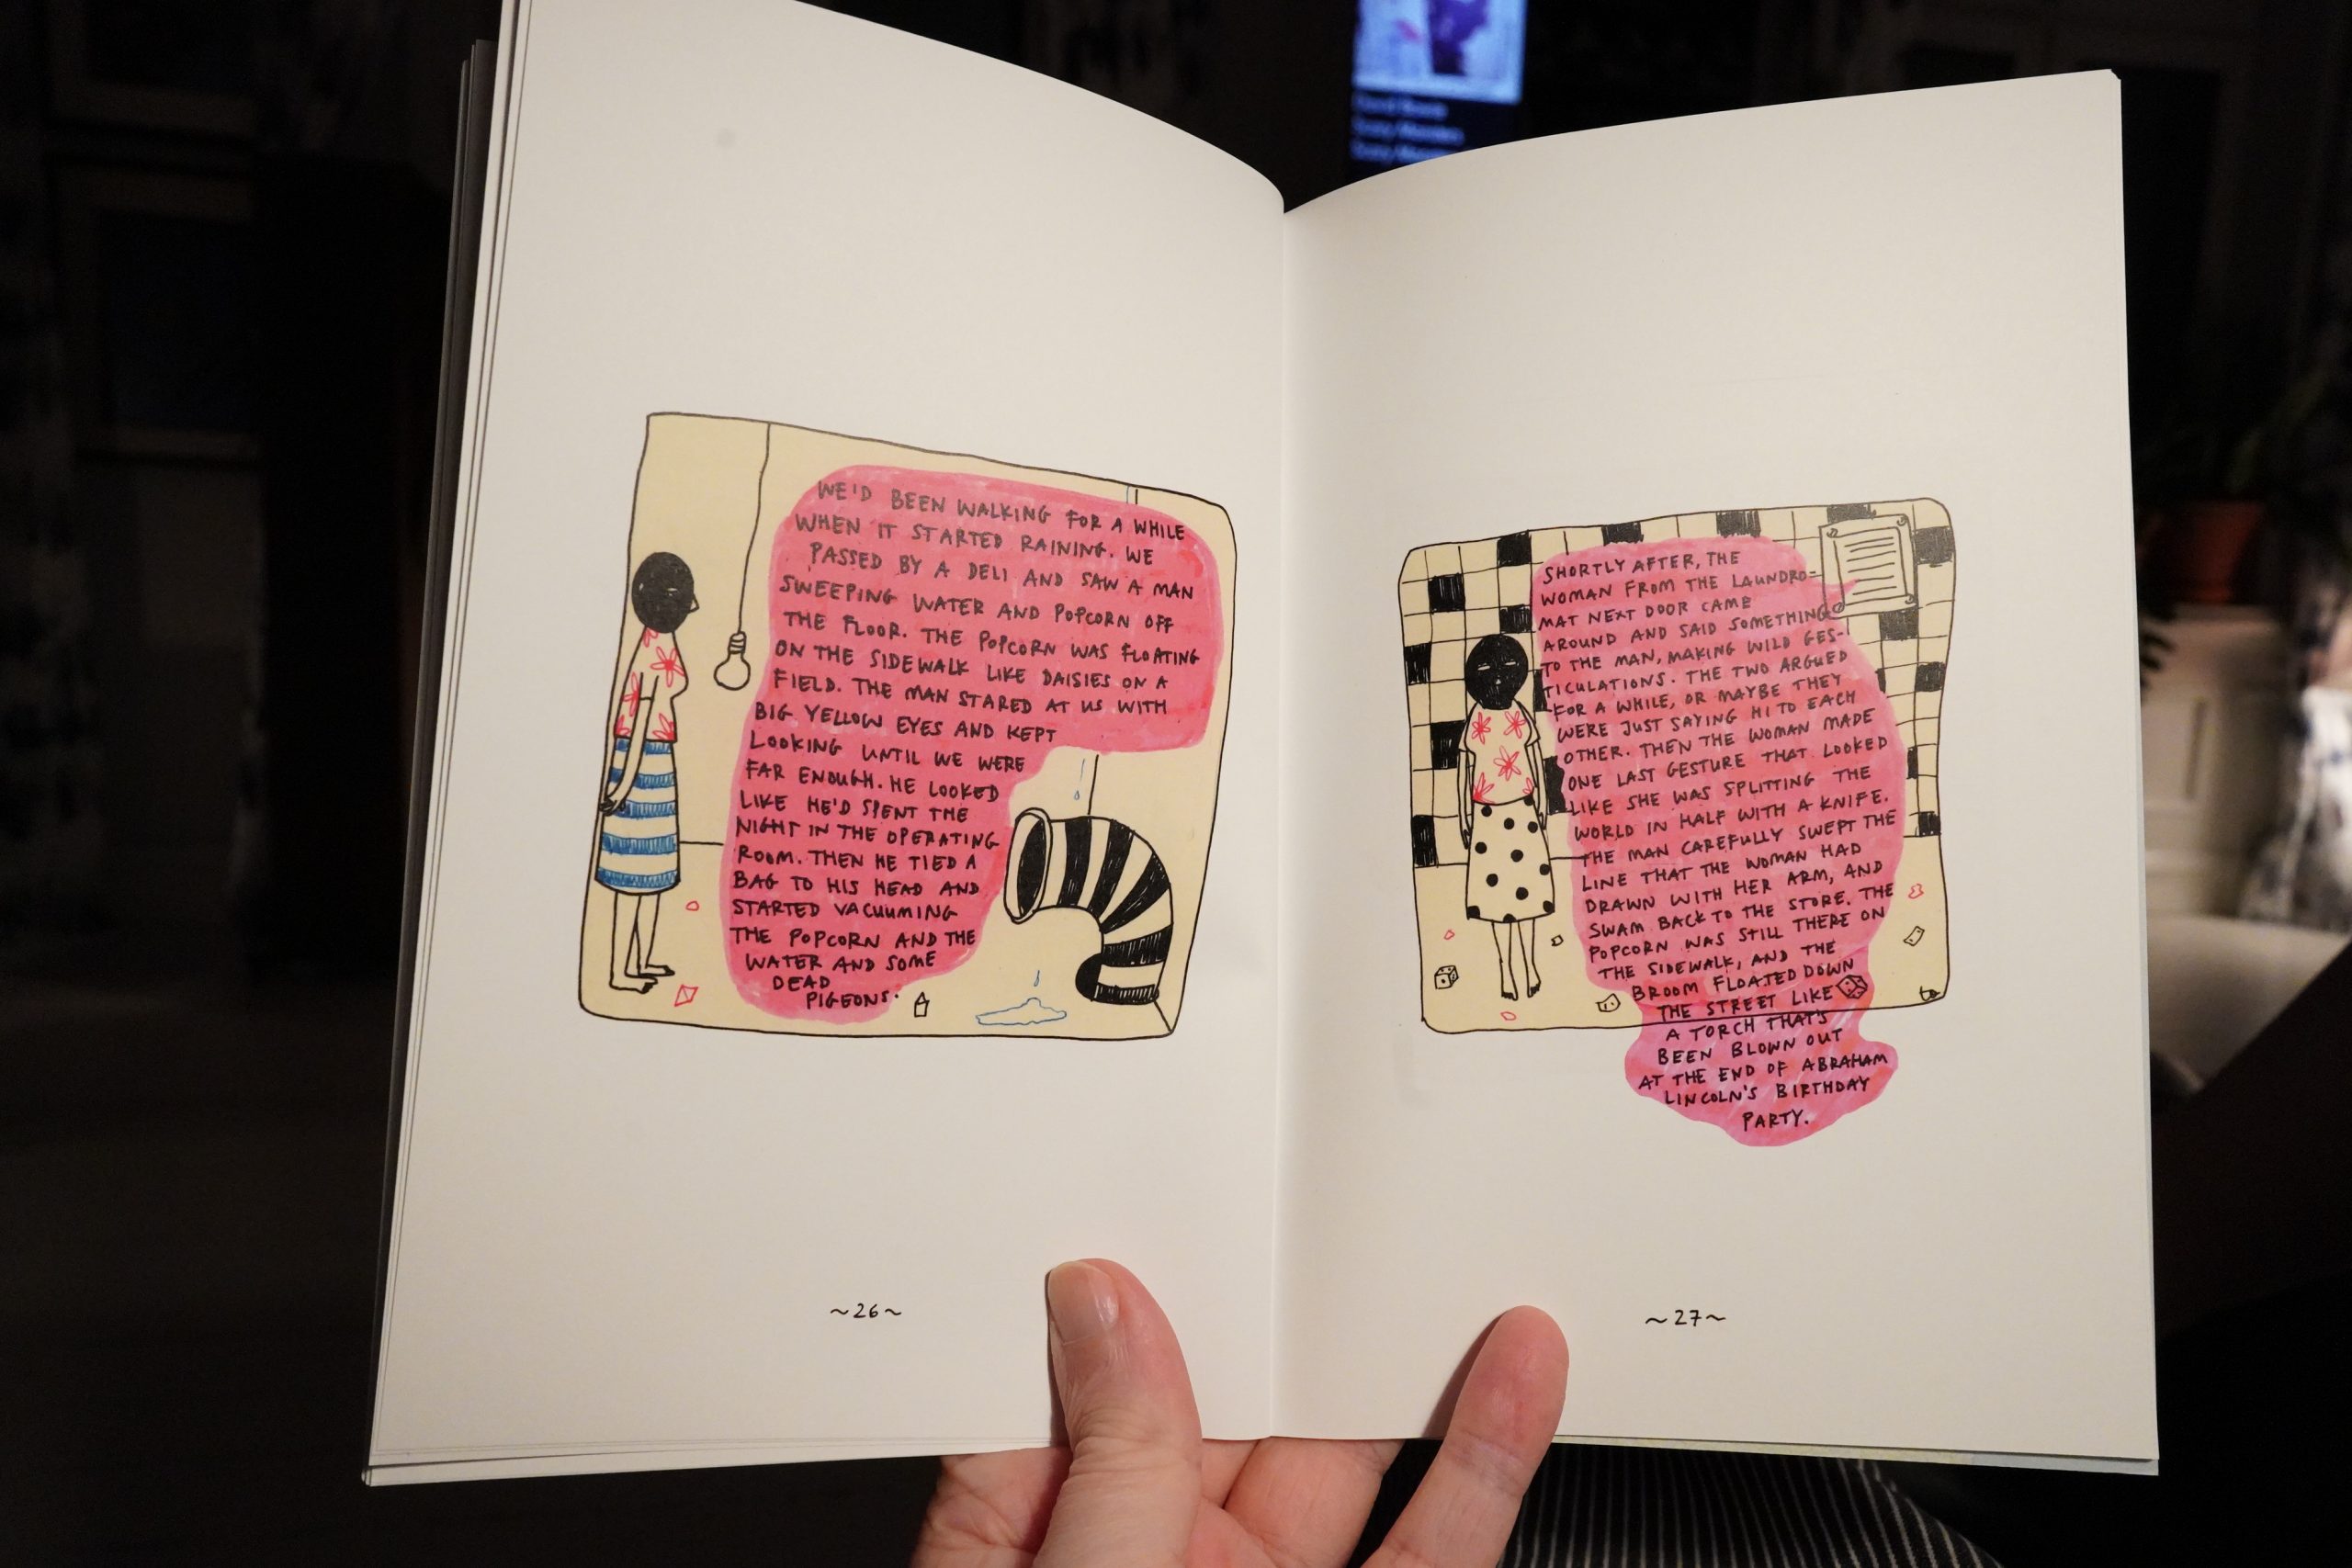 WE'D BEEN WALKING FOR A WHILE
WHEN IT STARTED RAINING. WE
PASSED BY A DELI AND SAW A MAN
SWEEPING WATER AND POPCORN OFF
THE FLOOR. THE POPCORN WAS FLOATING
ON THE SIDEWALK LIKE DAISIES ON A
FIELD. THE MAN STARED AT US WITH
BIG YELLOW EYES AND KEPT
LOOKING UNTIL WE WERE
FAR ENOUGH. HE LOOKED
LIKE HE'D SPENT THE
NIGHT IN THE OPERATING
ROOM. THEN HE TIED A
BAG TO HIS HEAD AND
STARTED VACUUMING
THE POPCORN AND THE
WATER AND SOME
DEAD
PIGEONS.
~26~
SHORTLY AFTER, THE
WOMAN FROM THE LAUNDRO-
MAT NEXT DOOR CAME
AROUND AND SAID SOMETHING
TO THE MAN, MAKING WILD GES-
TICULATIONS. THE TWO ARGUED
FOR A WHILE, OR MAYBE THEY
WERE JUST SAYING HI TO EACH
OTHER. THEN THE WOMAN MADE
ONE LAST GESTURE THAT LOOKED
LIKE SHE WAS SPLITTING THE
WORLD IN HALF WITH A KNIFE.
THE MAN CAREFULLY SWEPT THE
LINE THAT THE WOMAN HAD
DRAWN WITH HER ARM, AND
SWAM BACK TO THE STORE. THE
POPCORN WAS STILL THERE ON
THE SIDEWALK, AND THE
BROOM FLOATED DOWN
THE STREET LIKE
A TORCH THAT'S
BEEN BLOWN OUT
AT THE END OF ABRAHAM
LINCOLN'S BIRTHDAY
PARTY.
~27~